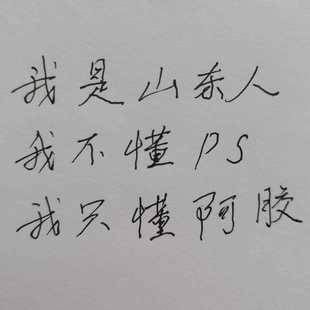 我是山东人
我不懂PS
我只懂阿胶